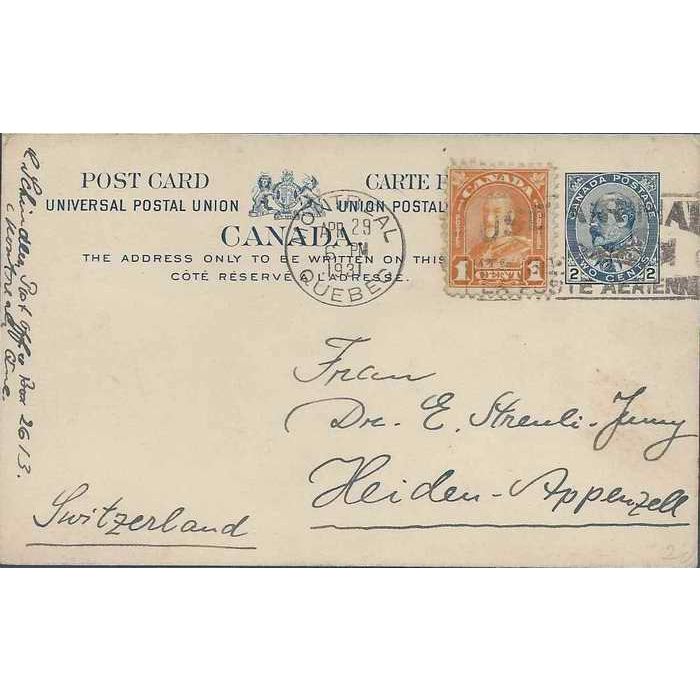 POST CARD CARTE P
UNIVERSAL POSTAL UNION UNION POSTAL
CANADA
THE ADDRESS ONLY TO BE WRITTEN ON THIS
CÔTÉ RÉSERVÉ À L'ADRESSE.
MONTREAL
APR 29
PM
1931
QUEBEC
CANADA
1 1
CANADA POSTAGE
2 2
TWO CENTS
US
AIR MA
POSTE AÉRIENNE
Schindler, Post Office Box 2613.
Montreal, Que.
Frau
Dr. E. Streuli-Jenny
Heiden-Appenzell
Switzerland